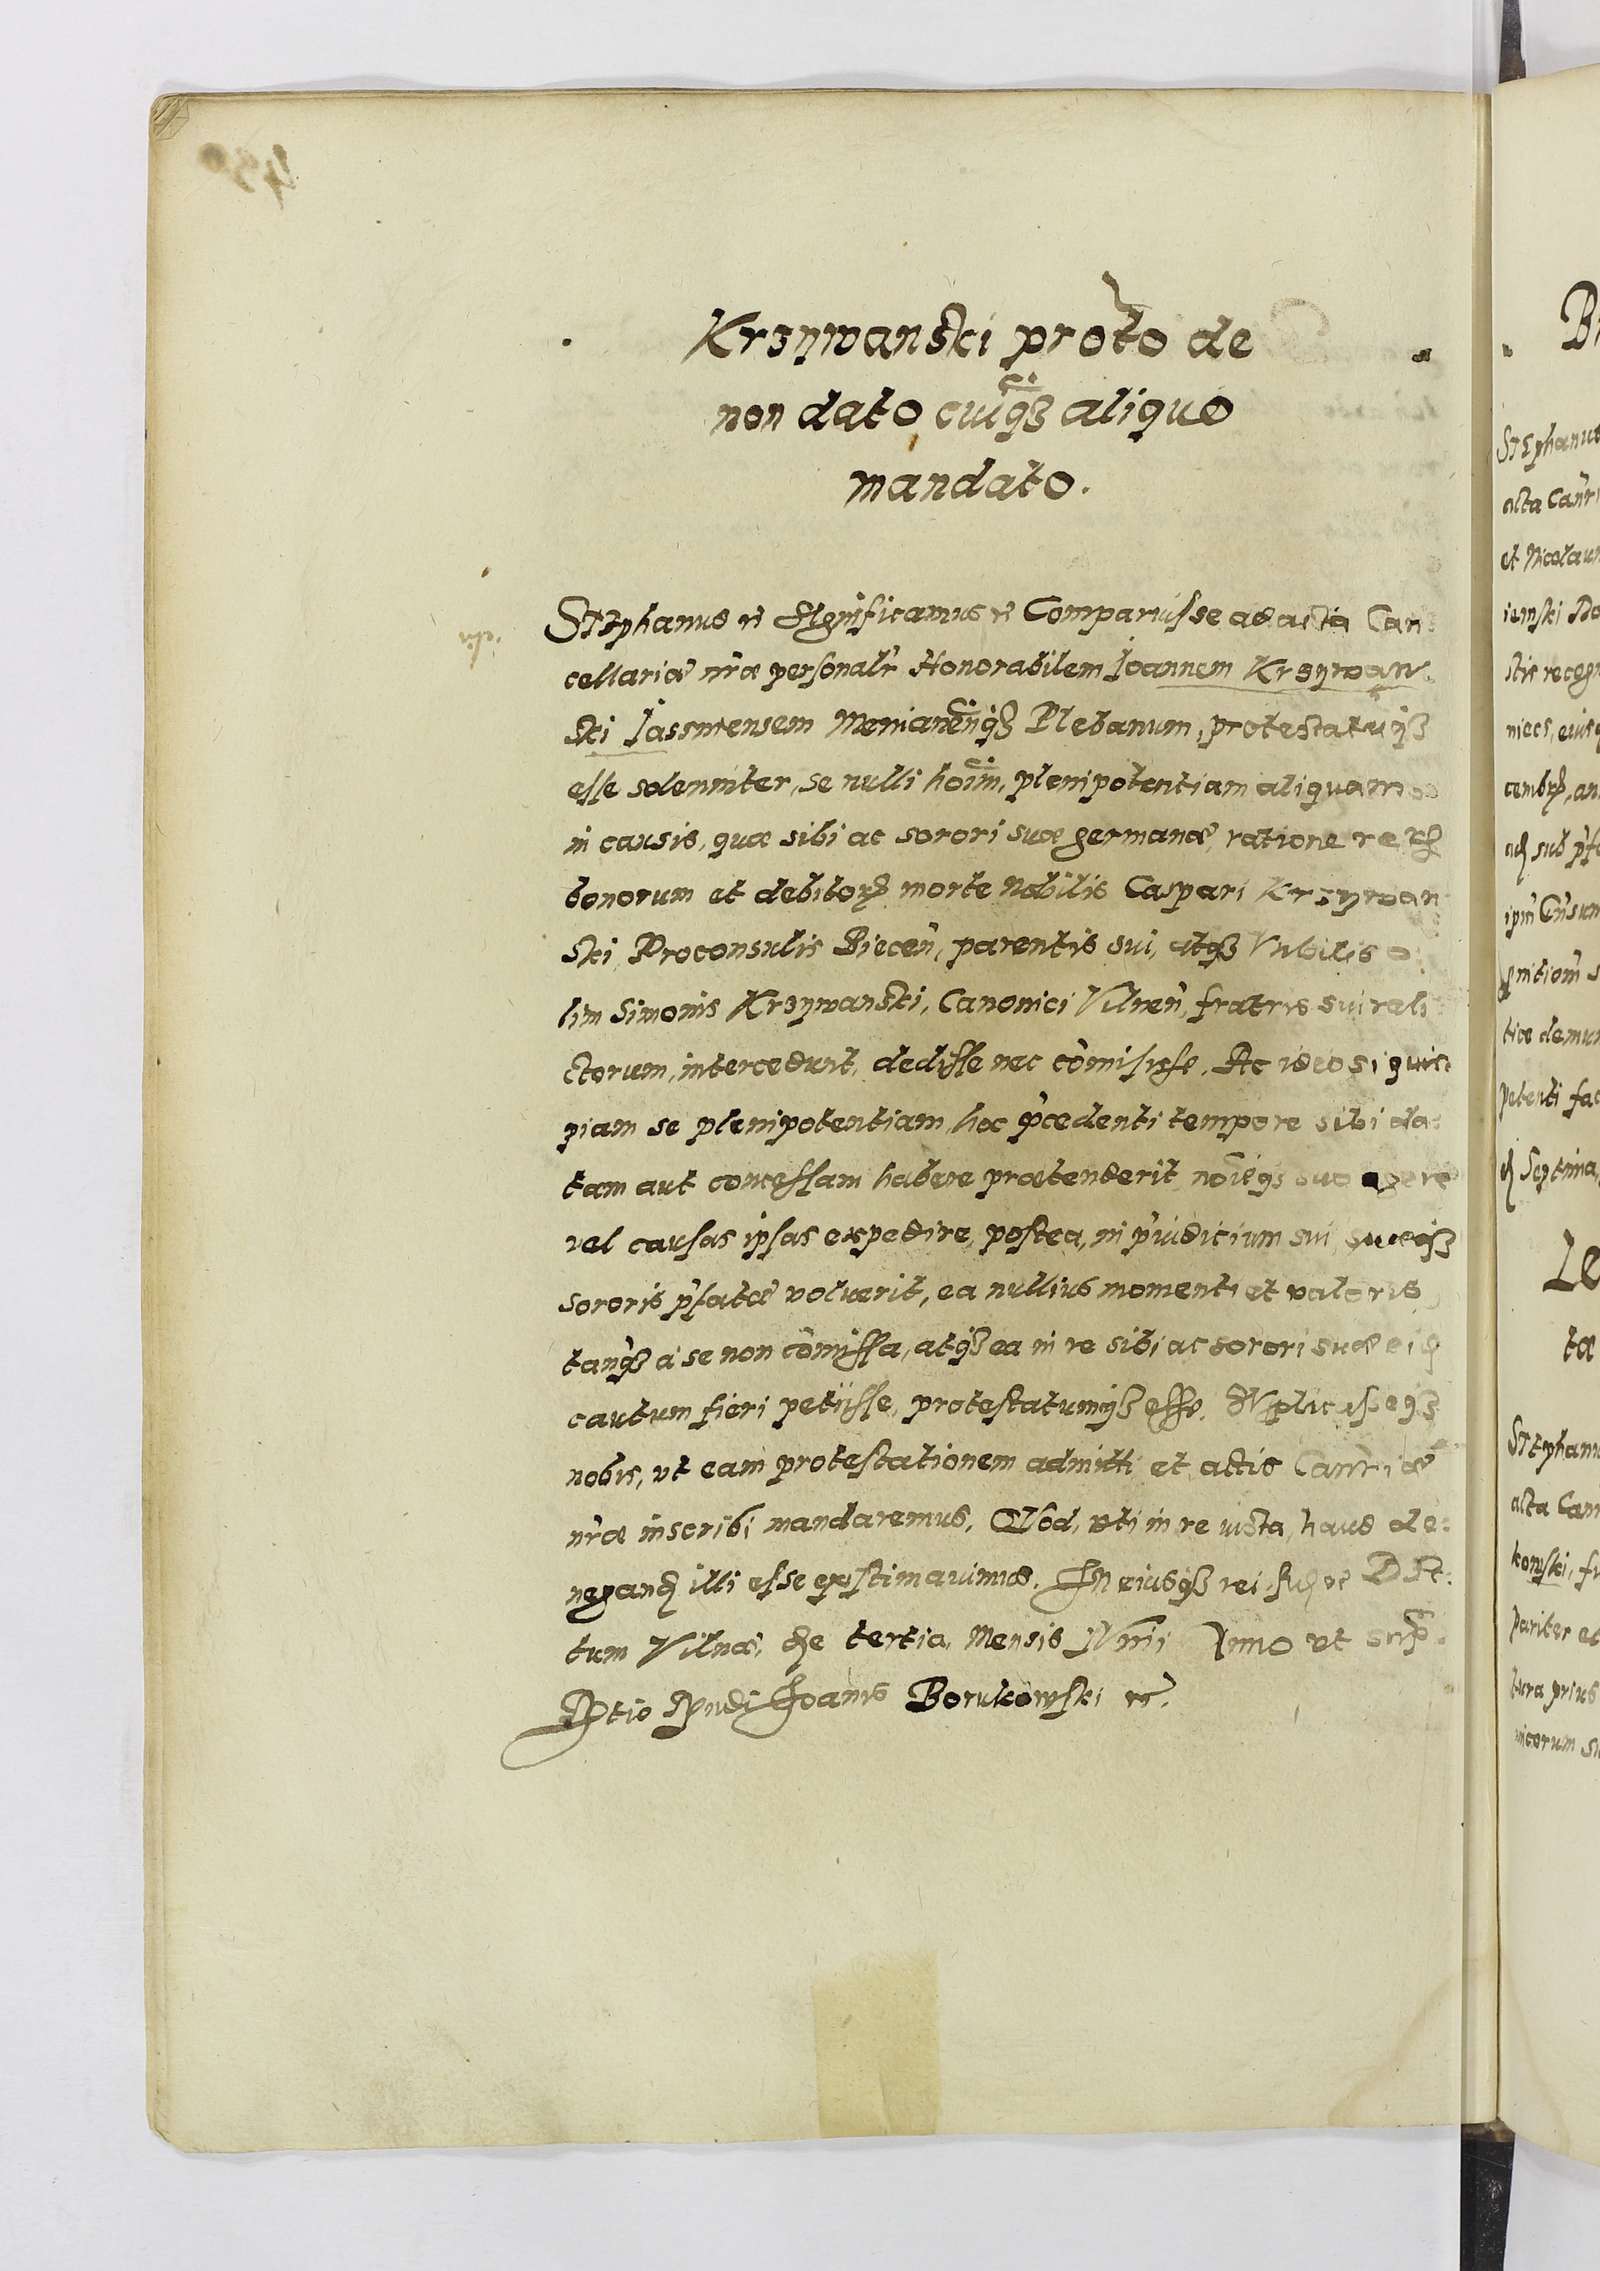 Krzywanski proto de
non dato cuiq3 aliquo
mandato.
Stephanus et Significamus et Comparuisse ad acta Can
cellariæ nr̃æ personalr̃ Honorabilem Joannem Krzywan
ski Jassmensem Plebanum, protestatuq3
esse solenniter, se nulli hoim̃, plenipotentiam aliquam
in causis, quæ sibi ac sorori suæ germanæ, ratione
bonorum et debitorꝝ morte Nobilis Caspari Krzywan
ski Proconsulis Biecen̄, parentis sui, atq3 Nobilis o
lim Simonis Krzywanski, Canonici Vilnen̄, fratris sui reli
ctorum, intercedunt, dedisse nec com̄isisse. Ac ideo si quis
piam se plenipotentiam hoc p̃cedenti tempore sibi da
tam aut concessam habere prætenderit nōieq3 suo agere
vel causas ipsas expedire, postea, in p̃iudicium sui, suæq3
sororis p̃fatæ voluerit, ea nullius momenti et valoris,
tanq̃3 à se non com̄issa, atq3 ea in re sibi, ac sorori suæ
cautum fieri petiisse, protestatumq3 esse. Supplicasseq3
nobis, ut eam protestationem admitti et actis Canr̃iæ
nr̃æ inscribi mandaremus. Quod, uti in re iusta, haud de=
negand̃ illi esse existimavimus. In eiusq3 rei fid̃ et Da
tum Vilnæ, die tertia, Mensis Junii Anno ut sup̃.
R̃tio R̃ndi Joanis Borukowski et.